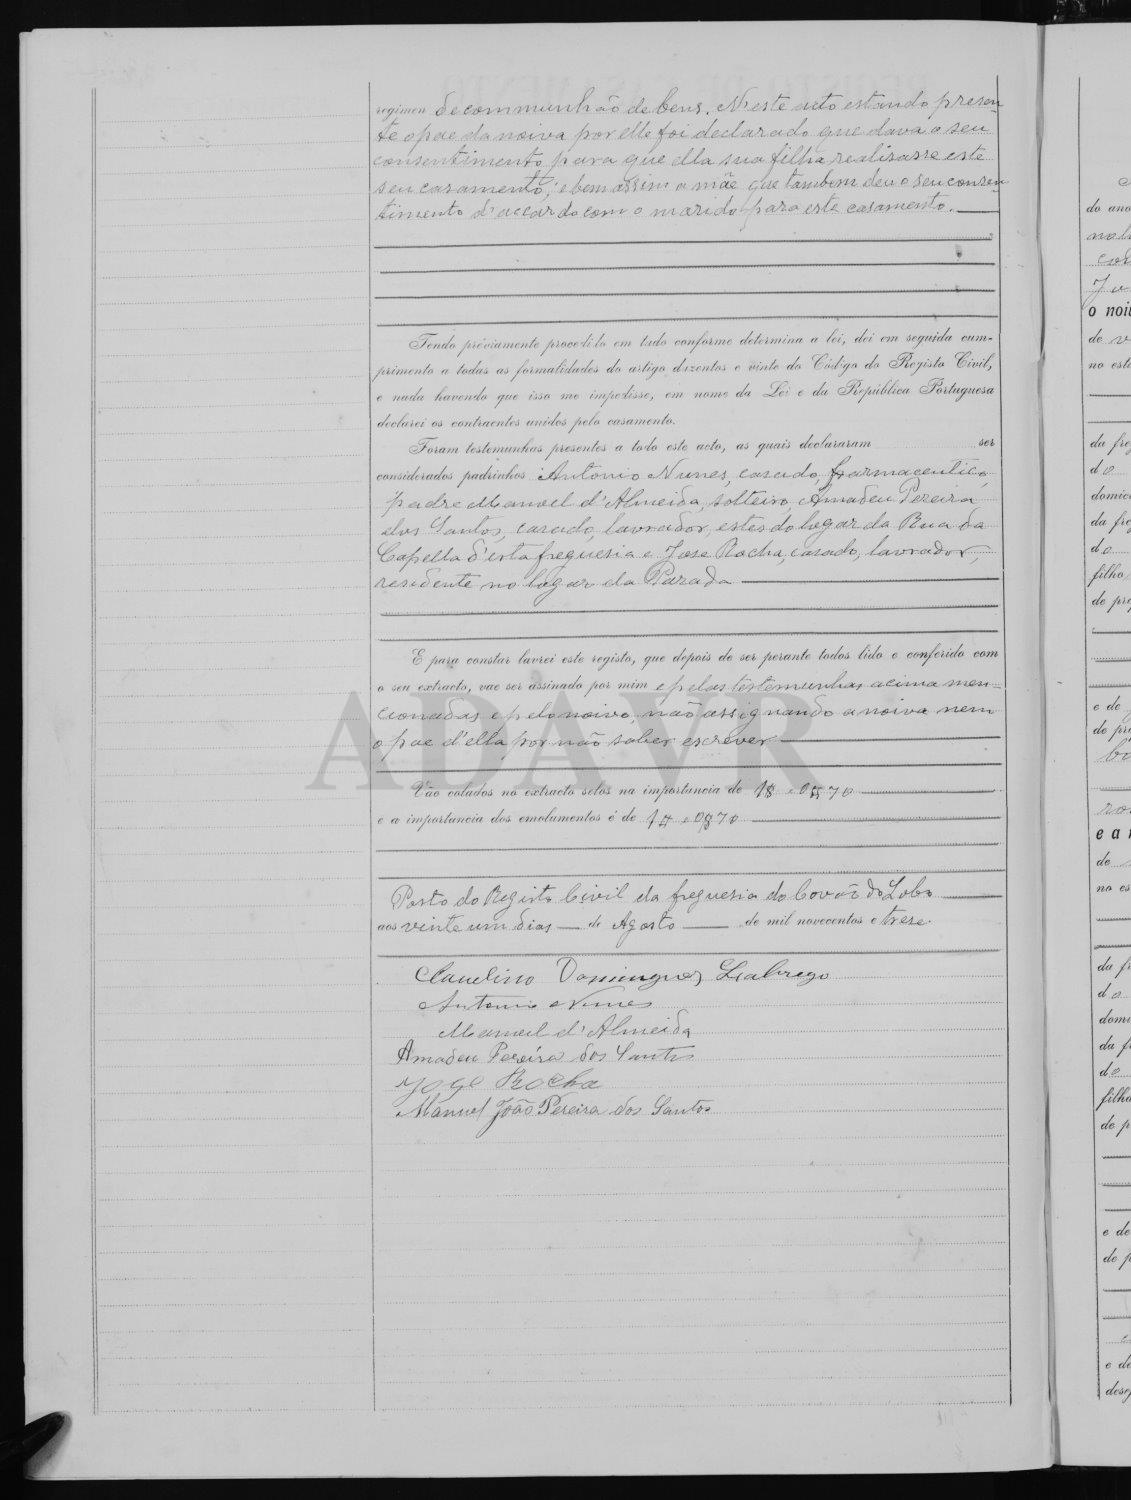 regimen de communhão de bens. Neste acto estando presen-
te o pae da noiva por elle foi declarado que dava o seu
consentimento para que ella sua filha realisasse este
seu casamento, e bem assim a mãe que tambem deu o seu consen-
timento d'accardo com o marido para este casamento.
Tendo préviamente procedido em tudo conforme determina a lei, dei em seguida cum-
primento a todas as formalidades do artigo duzentos e vinte do Código do Registo Civil,
e nada havendo que isso me impedisse, em nome da Lei e da República Portuguesa
declarei os contraentes unidos pelo casamento.
Foram testemunhas presentes a todo este acto, as quais declararam ser
considerados padrinhos Antonio Nunes, casado, farmaceutico,
padre Manoel d'Almeida, solteiro, Amadeu Pereira
dos Santos, casado, lavrador, estes do logar da Rua da
Capella d'esta freguesia e Jose Rocha, casado, lavrador,
residente no logar da Parada
E para constar lavrei este registo, que depois de ser perante todos lido e conferido com
o seu extracto, vae ser assinado por mim e pelas testemunhas acima men-
cionadas e pelo noivo, não assignando a noiva nem
o pae d'ella por não saber escrever
ADAVR
Vão colados no extracto selos na importancia de
e a importancia dos emolumentos é de
Posto do Registo Civil da freguesia do Covão do Lobo
aos vinte um dias de Agosto de mil novecentos e treze.
Claudino Domingues Labrego
Antonio Nunes
Manuel d'Almeida
Amadeu Pereira dos Santos
Joze Rocha
Manuel João Pereira dos Santos
do ano
o noi
de
no est
da fre
do
domic
da fre
do
filho
de pro
e de
de pro
e a
de
no es
da f
do
domi
da f
do
filha
de p
e de
de p
e de
desp